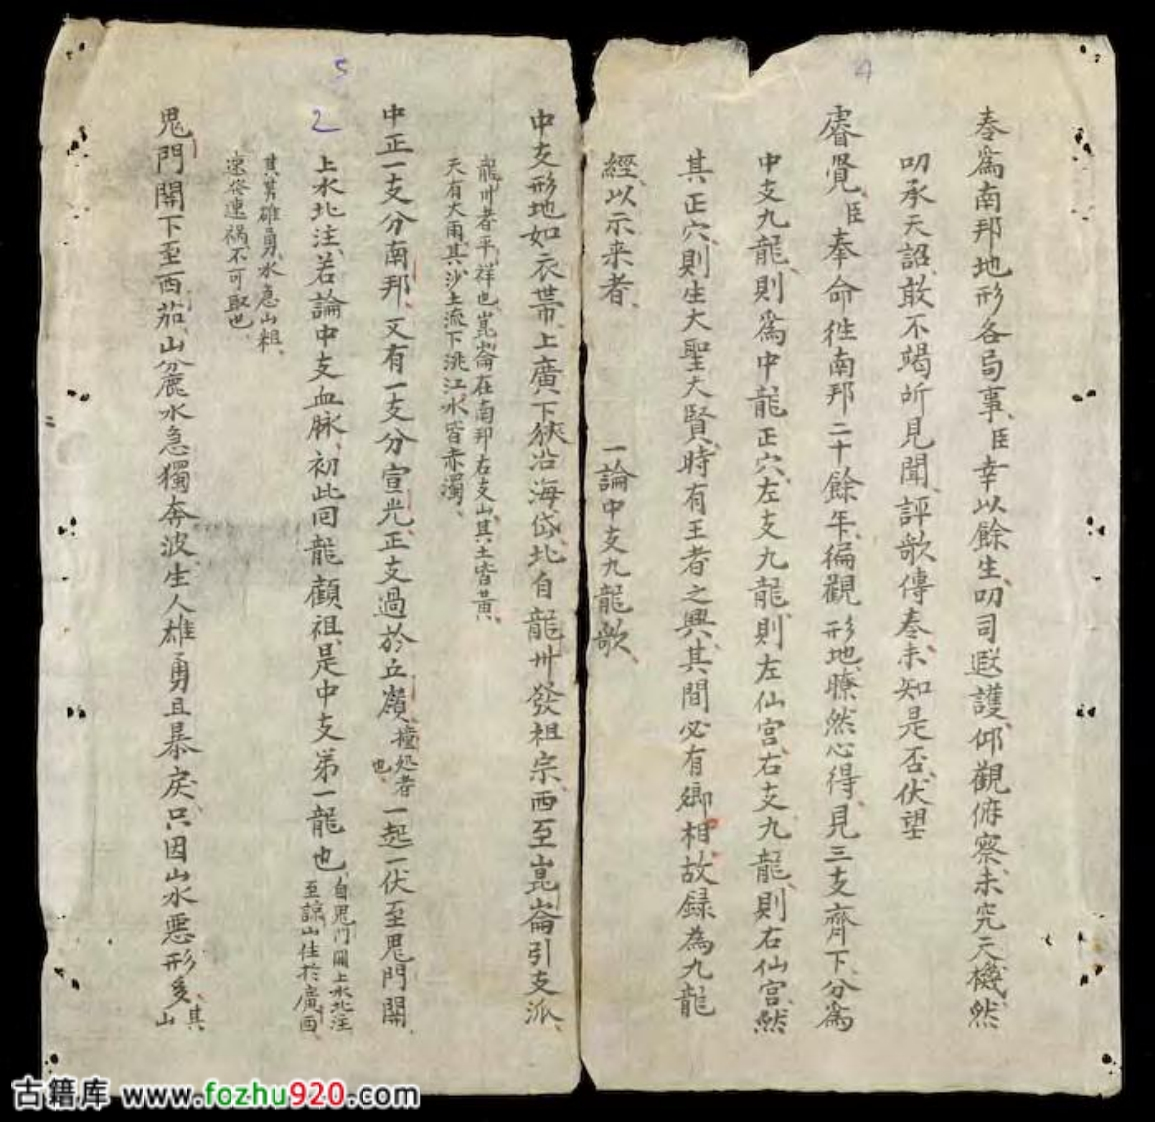 4
奏爲南邦地形各局事臣幸以餘生叨司遐護仰觀俯察未究天機然
叨承天詔敢不竭所見聞評歌傳奏未知是否伏望
睿覽臣奉命徃南邦二十餘年徧觀形地瞭然心得見三支齊下分爲
中支九龍則爲中龍正穴左支九龍則左仙宫右支九龍則右仙宫然
其正穴則生大聖大賢時有王者之興其間必有卿相故録為九龍
經以示来者 一論中支九龍歌
5
中支形地如衣帶上廣下狹沿海岱北自龍卅發祖宗西至崑崙引支派
龍卅者平祥也崑崙在南邦右支山其土皆黄
天有大雨其沙土流下洮江水皆赤濁
中正一支分南邦又有一支分宣光正支過於丘嶺撞処者也一起一伏至鬼門關
2
上水北注若論中支血脉初此回龍顧祖是中支第一龍也自鬼門關上水北注
至諒山住於廣西
其勇雄勇水急山粗
速發連禍不可取也
鬼門關下至西茄山麓水急獨奔波生人雄勇且暴戾只因山水悪形多其
山
古籍库 www.fozhu920.com